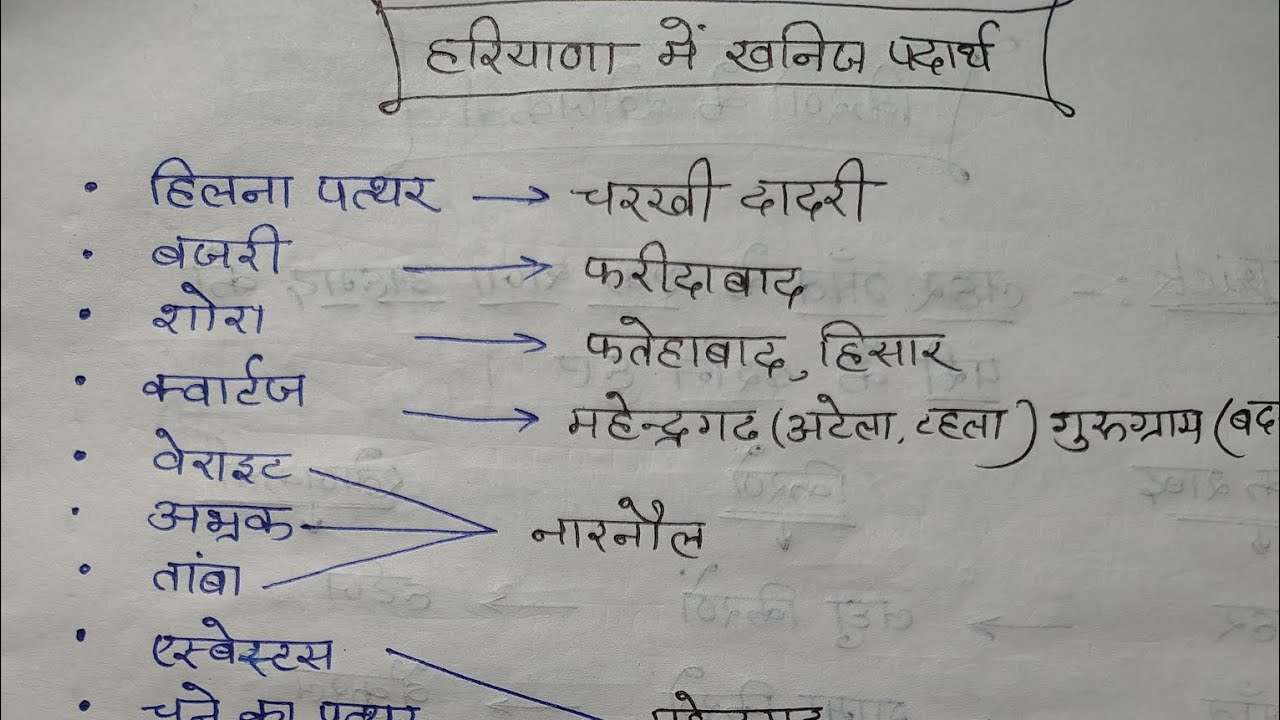 हरियाणा में खनिज पदार्थ
• हिलना पत्थर → चरखी दादरी
• बजरी → फरीदाबाद
• शोरा → फतेहाबाद, हिसार
• क्वार्टज → महेन्द्रगढ़ (अटेला, टहला) गुरुग्राम (बद
• वेराइट
• अभ्रक नारनौल
• तांबा
• एस्बेस्टस
• चूने का पत्थर